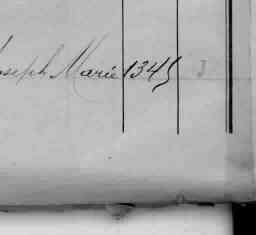 Joseph Marie 1345 3